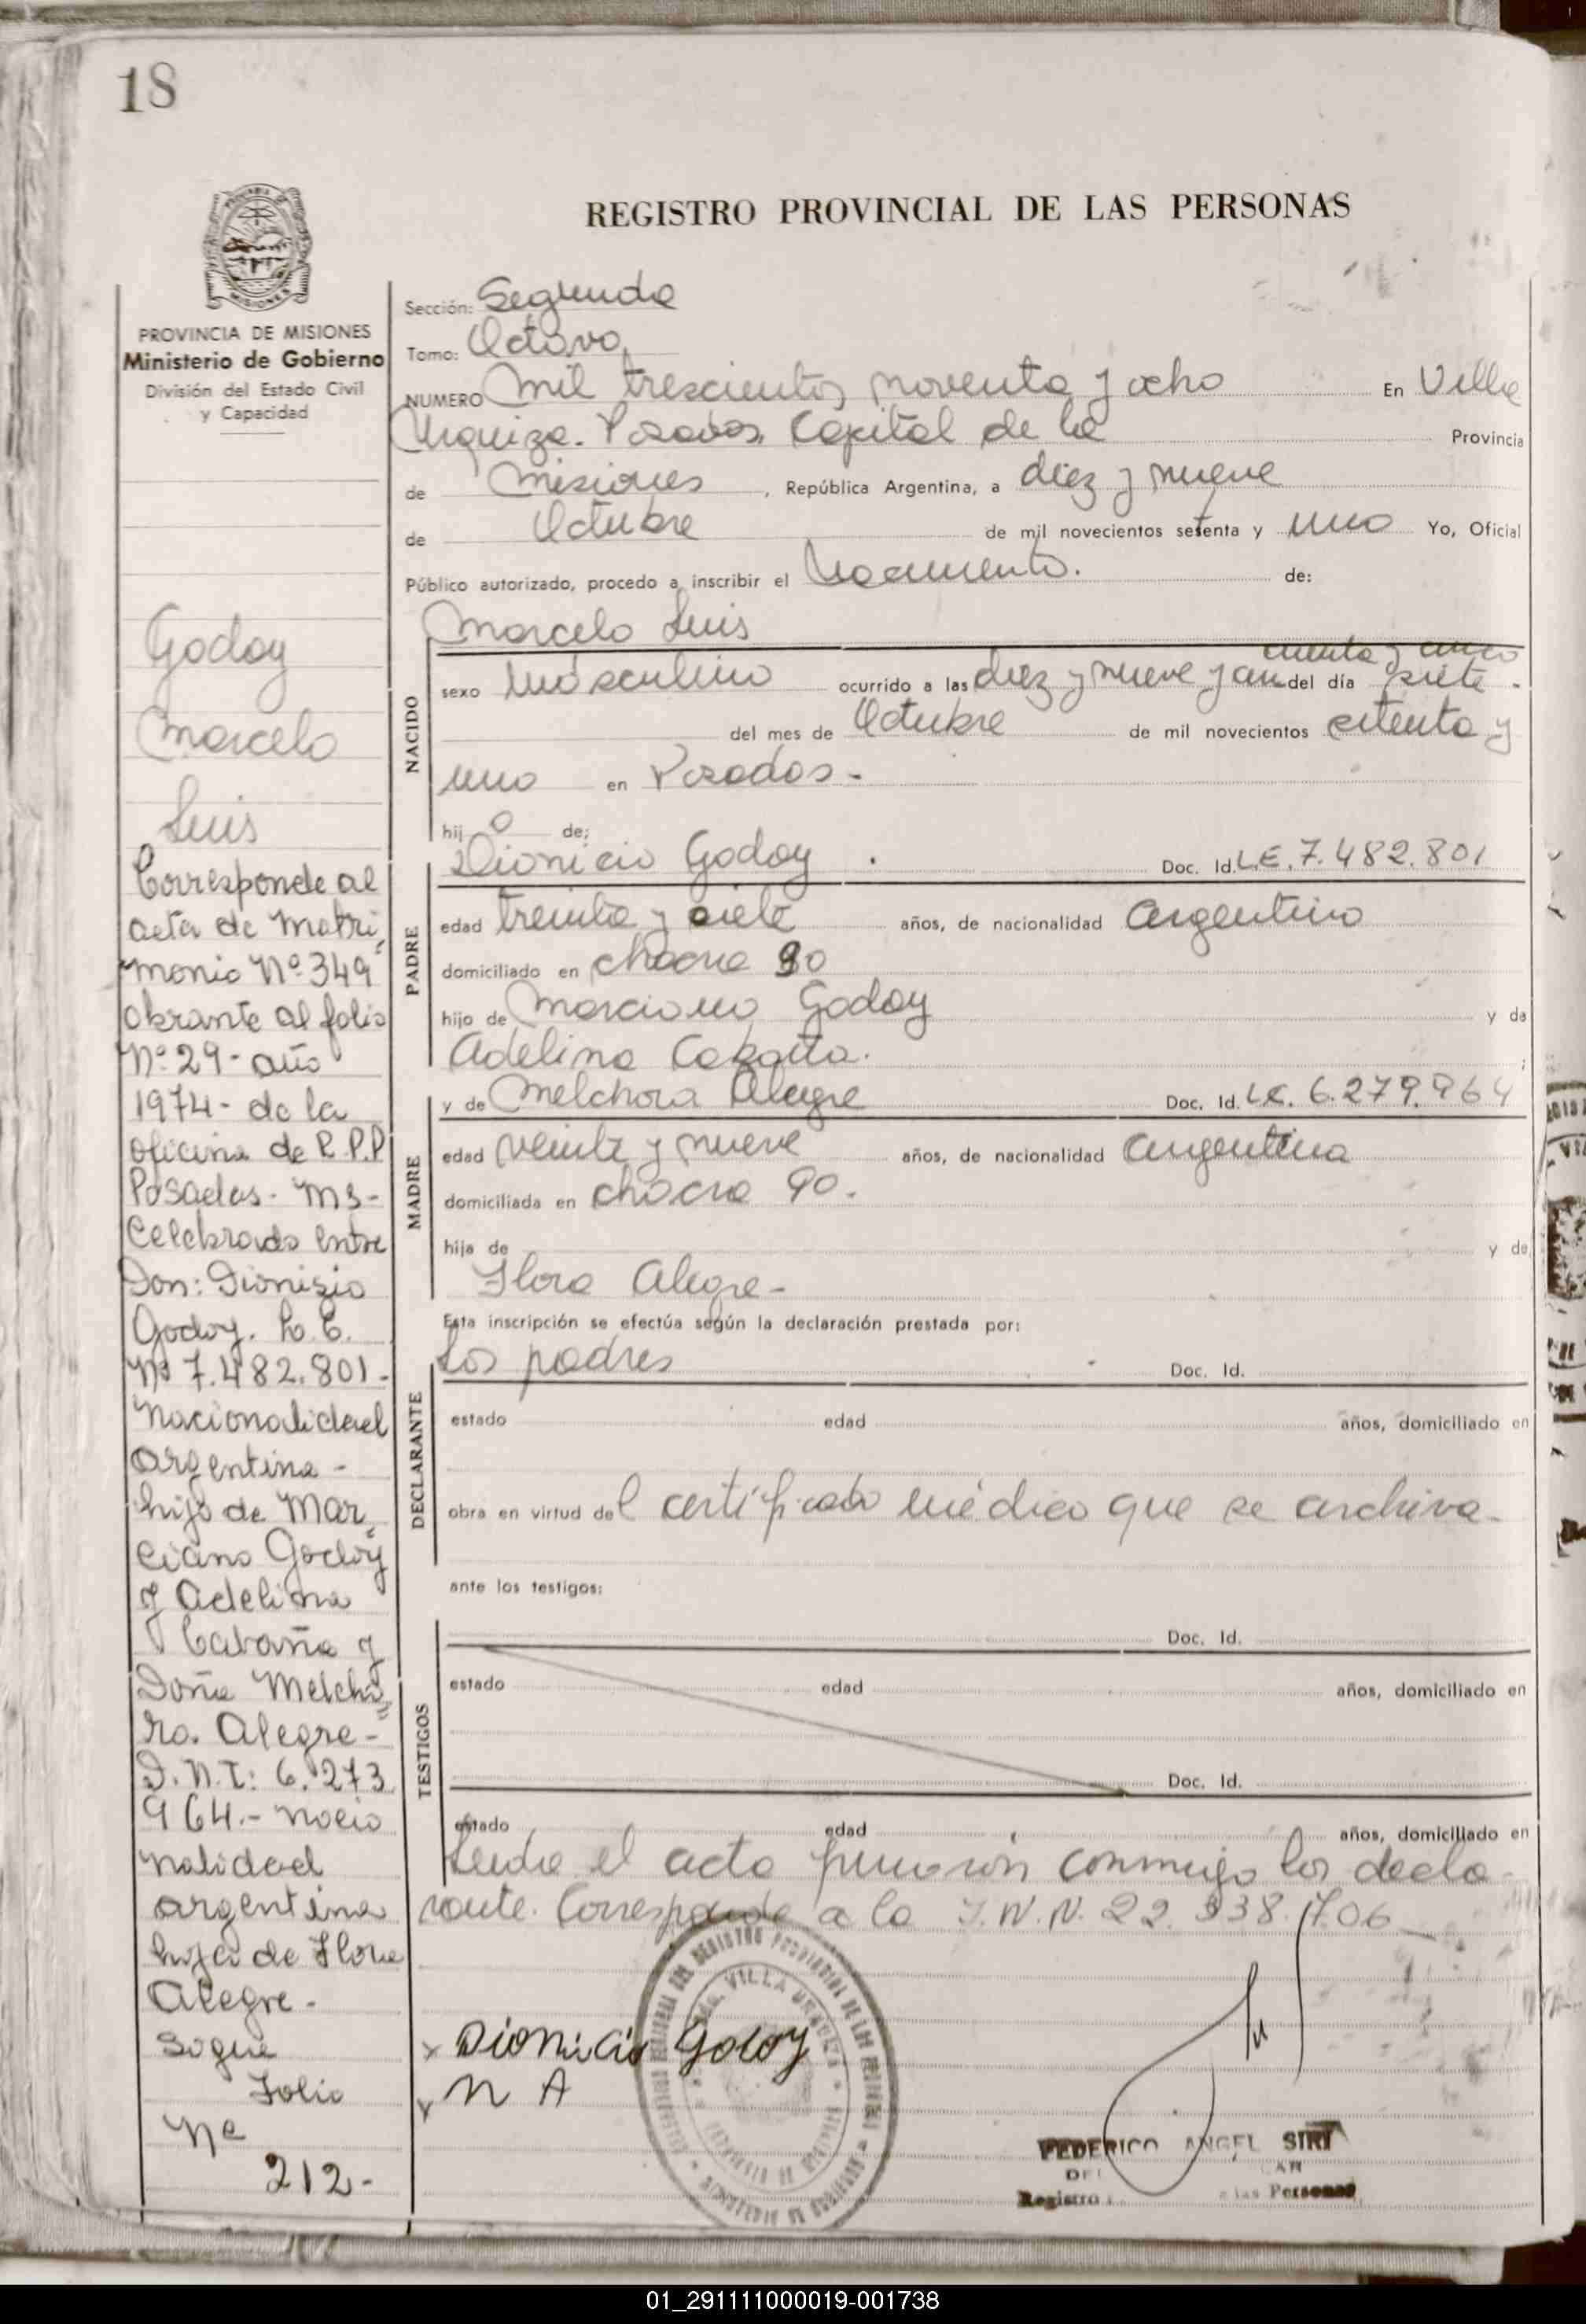 18
REGISTRO PROVINCIAL DE LAS PERSONAS
MISIONES
PROVINCIA DE MISIONES
Ministerio de Gobierno
División del Estado Civil
y Capacidad
Godoy
Marcelo
Luis
Corresponde al
acta de Matri
monio Nº 349
obrante al folio
Nº 29 - año
1974 - de la
oficina de R.P.P
Posadas - Ms -
Celebrado entre
Don: Dionisio
Godoy. L.E.
Nº 7.482.801 -
Nacionalidad
argentina -
hijo de Mar
ciano Godoy
y Adelina
Cabaña y
Doña Melcho
ra. Alegre -
D.N.I: 6.273
964.- nacio
nalidad
argentina
hija de Flora
Alegre -
Sigue
Folio
Nº
212 -
Sección: Segunda
Tomo: Octavo
NUMERO Mil trescientos noventa y ocho En Villa
Urquiza. Posadas, Capital de la Provincia
de Misiones, República Argentina, a diez y nueve
de Octubre de mil novecientos setenta y uno Yo, Oficial
Público autorizado, procedo a inscribir el Nacimiento. de:
Marcelo Luis
cuenta y cinco
NACIDO
sexo Masculino ocurrido a las diez y nueve y cin del día siete -
del mes de Octubre de mil novecientos setenta y
uno en Posadas -
hijo de:
Dionicio Godoy . Doc. Id. L.E. 7.482.801
PADRE
edad treinta y siete años, de nacionalidad argentino
domiciliado en chacra 90
hijo de Marciano Godoy y de
Adelina Cabaña.
y de Melchora Alegre Doc. Id. L.C. 6.279.964
MADRE
edad veinte y nueve años, de nacionalidad argentina
domiciliada en chacra 90.
hija de y de
Flora Alegre -
Esta inscripción se efectúa según la declaración prestada por:
Los padres Doc. Id.
DECLARANTE
estado edad años, domiciliado en
obra en virtud del certificado médico que se archiva -
ante los testigos:
Doc. Id.
TESTIGOS
estado edad años, domiciliado en
Doc. Id.
estado edad años, domiciliado en
Leida el acta firmaron conmigo los decla
rante. Corresponde a la I.N.N. 22.338.706
VILLA URQUIZA
x Dionicio Godoy
x N A
FEDERICO ANGEL SIRI
Registro
las Personas
01_291111000019-001738